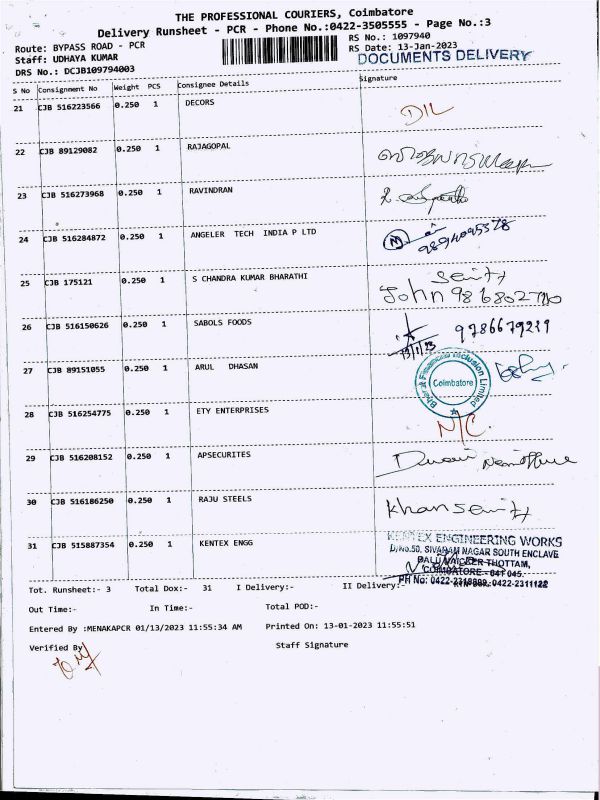 THE PROFESSIONAL COURIERS, Coimbatore
Delivery Runsheet - PCR - Phone No.:0422-3505555 - Page No.:3
Route: BYPASS ROAD - PCR
RS No.: 1097940
Staff: UDHAYA KUMAR
RS Date: 13-Jan-2023
DRS No.: DCJB109794003
DOCUMENTS DELIVERY
S No Consignment No Weight PCS Consignee Details Signature
21 CJB 516223566 0.250 1 DECORS DIL
22 CJB 89129082 0.250 1 RAJAGOPAL
23 CJB 516273968 0.250 1 RAVINDRAN
24 CJB 516284872 0.250 1 ANGELER TECH INDIA P LTD
25 CJB 175121 0.250 1 S CHANDRA KUMAR BHARATHI
John
26 CJB 516150626 0.250 1 SABOLS FOODS
13/1/23
27 CJB 89151055 0.250 1 ARUL DHASAN
Coimbatore
28 CJB 516254775 0.250 1 ETY ENTERPRISES N/C.
29 CJB 516208152 0.250 1 APSECURITES
30 CJB 516186250 0.250 1 RAJU STEELS Khan
31 CJB 515887354 0.250 1 KENTEX ENGG
KENTEX ENGINEERING WORKS
D/No.50, SIVARAM NAGAR SOUTH ENCLAVE
THOTTAM,
COIMBATORE - 641 045.
Tot. Runsheet:- 3 Total Dox:- 31 I Delivery:- II Delivery:-
Out Time:- In Time:- Total POD:-
Entered By :MENAKAPCR 01/13/2023 11:55:34 AM Printed On: 13-01-2023 11:55:51
Verified By Staff Signature